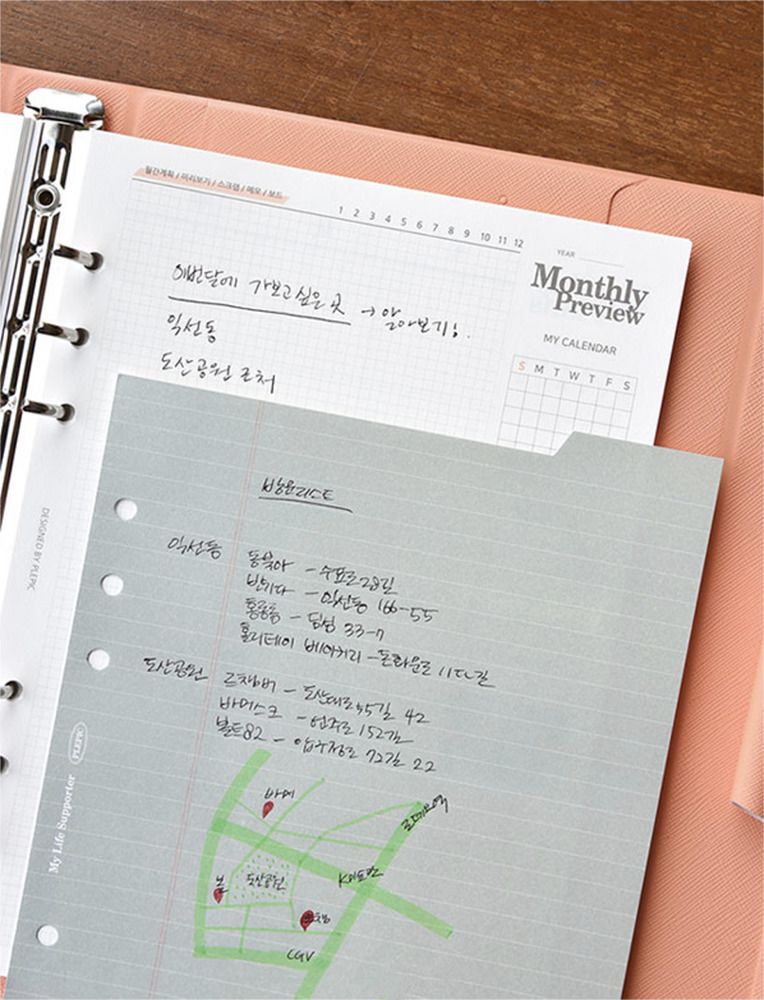 월간계획 / 미리보기 / 스크랩 / 메모 / 보드
1 2 3 4 5 6 7 8 9 10 11 12
YEAR
Monthly
Preview
MY CALENDAR
S M T W T F S
이번달에 가보고싶은 곳 → 알아보기!
익선동
도산공원 근처
방문리스트
익선동 동북아 - 수표로28길
반기다 - 익선동 166-55
홍롱롱 - 33-7
홀리데이 베이커리 - 돈화문로 11다길
도산공원 르챔버 - 도산대로55길 42
바메스크 - 언주로 152길
볼트82 - 압구정로 72길 22
바메
로데오역
볼
도산공원
르챔
CGV
DESIGNED BY PLEPIC
My Life Supporter PLEPIC